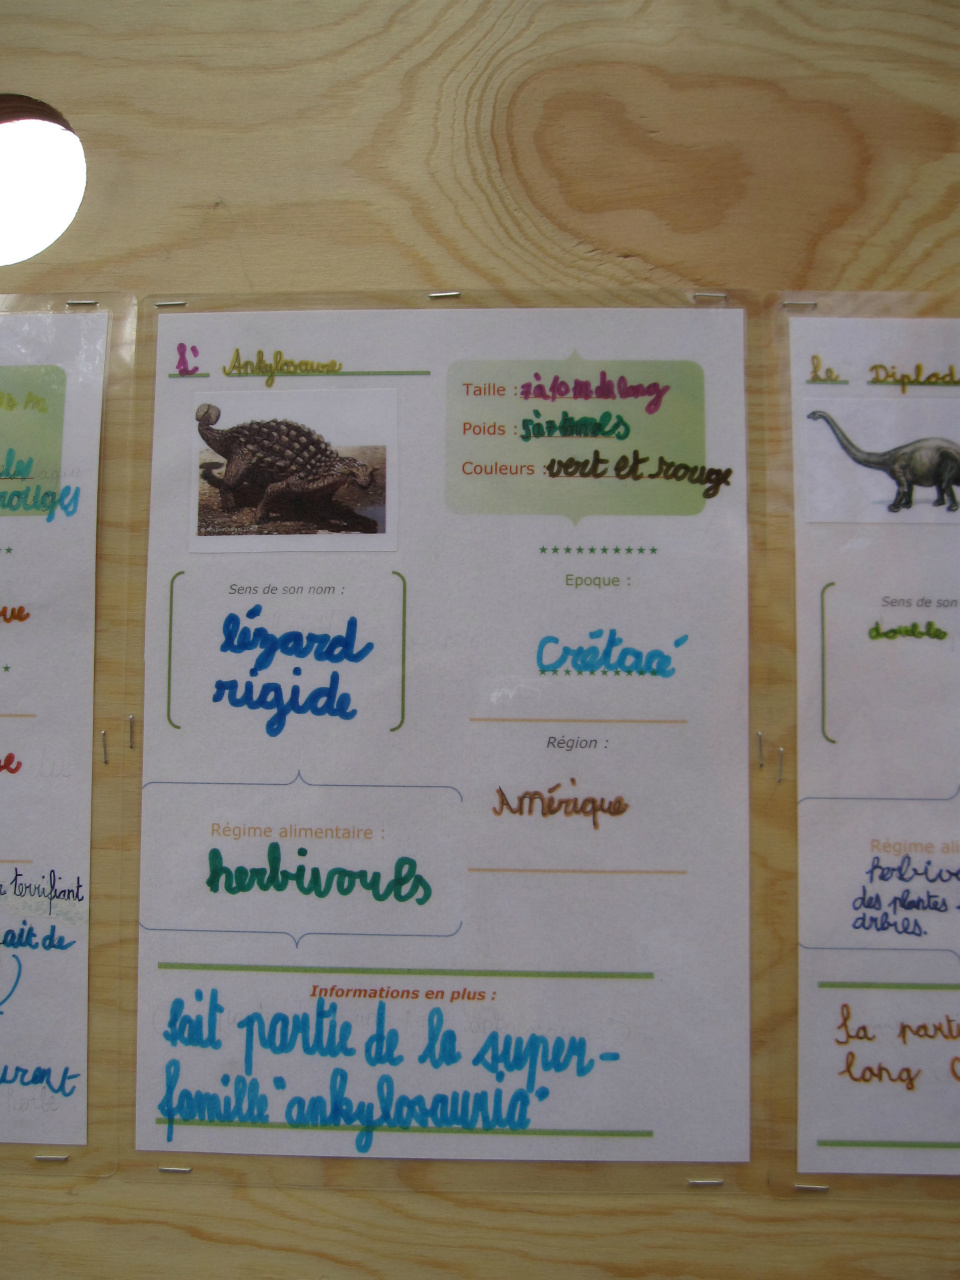 L' Ankylosaure
Taille : 7 à 10 m de long
Poids : 5 à 7 tonnes
Couleurs : vert et rouge
Sens de son nom :
lézard
rigide
Epoque :
Crétacé
Région :
Amérique
Régime alimentaire :
herbivores
Informations en plus :
fait partie de la super-
famille "ankylosauria"
rouges
terrifiant
ait de
Le Diplod
Sens de son
double
Régime ali
herbivo
des plantes
arbres.
Sa part
long